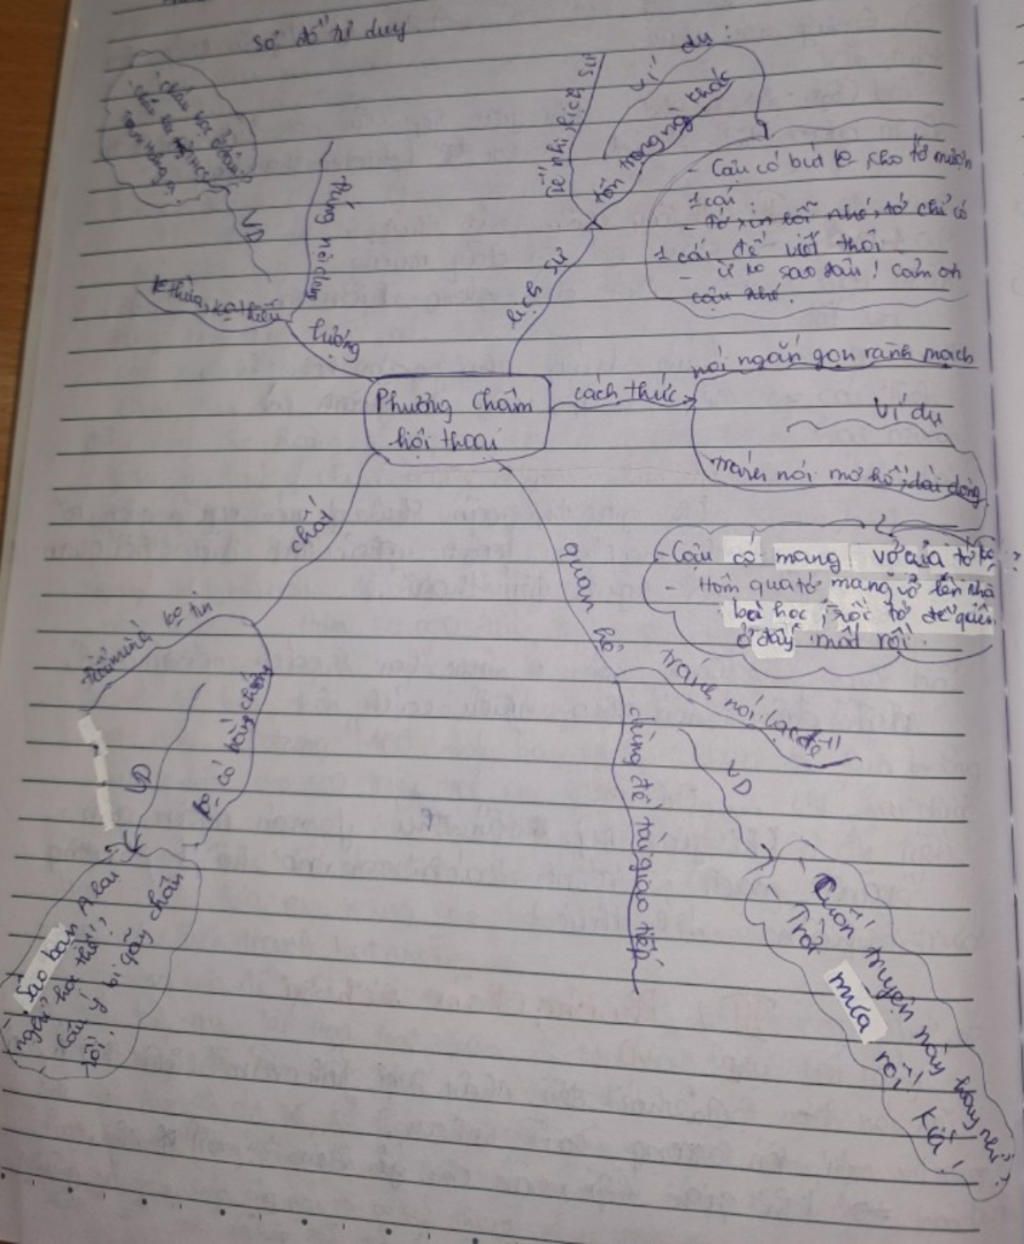 Sơ đồ tư duy
Phương châm
hội thoại
lượng
đúng nội dung
ko thừa, ko thiếu
VD
cháu học ở đâu?
lịch sự
tế nhị
tôn trọng người khác
ví dụ:
- Cậu có bút k cho tớ mượn
1 cái.
- Tớ xin lỗi nhé, tớ chỉ có
1 cái để viết thôi
- ừ ko sao đâu! Cảm ơn
cậu nhé.
cách thức
nói ngắn gọn rành mạch
Ví dụ
tránh nói mơ hồ, dài dòng
- Cậu có mang vở của tớ ko?
- Hôm qua tớ mang vở lên nhà
bà học, rồi tớ để quên
ở đấy mất rồi.
quan hệ
tránh nói lạc đề
đúng đề tài giao tiếp
VD
- Cuốn truyện này hay nhỉ?
- Trời mưa rồi kìa!
chất
ko tin
ko có bằng chứng
VD
Sao bạn A lại
nghỉ học thế?
Cậu ý bị gãy chân
rồi!